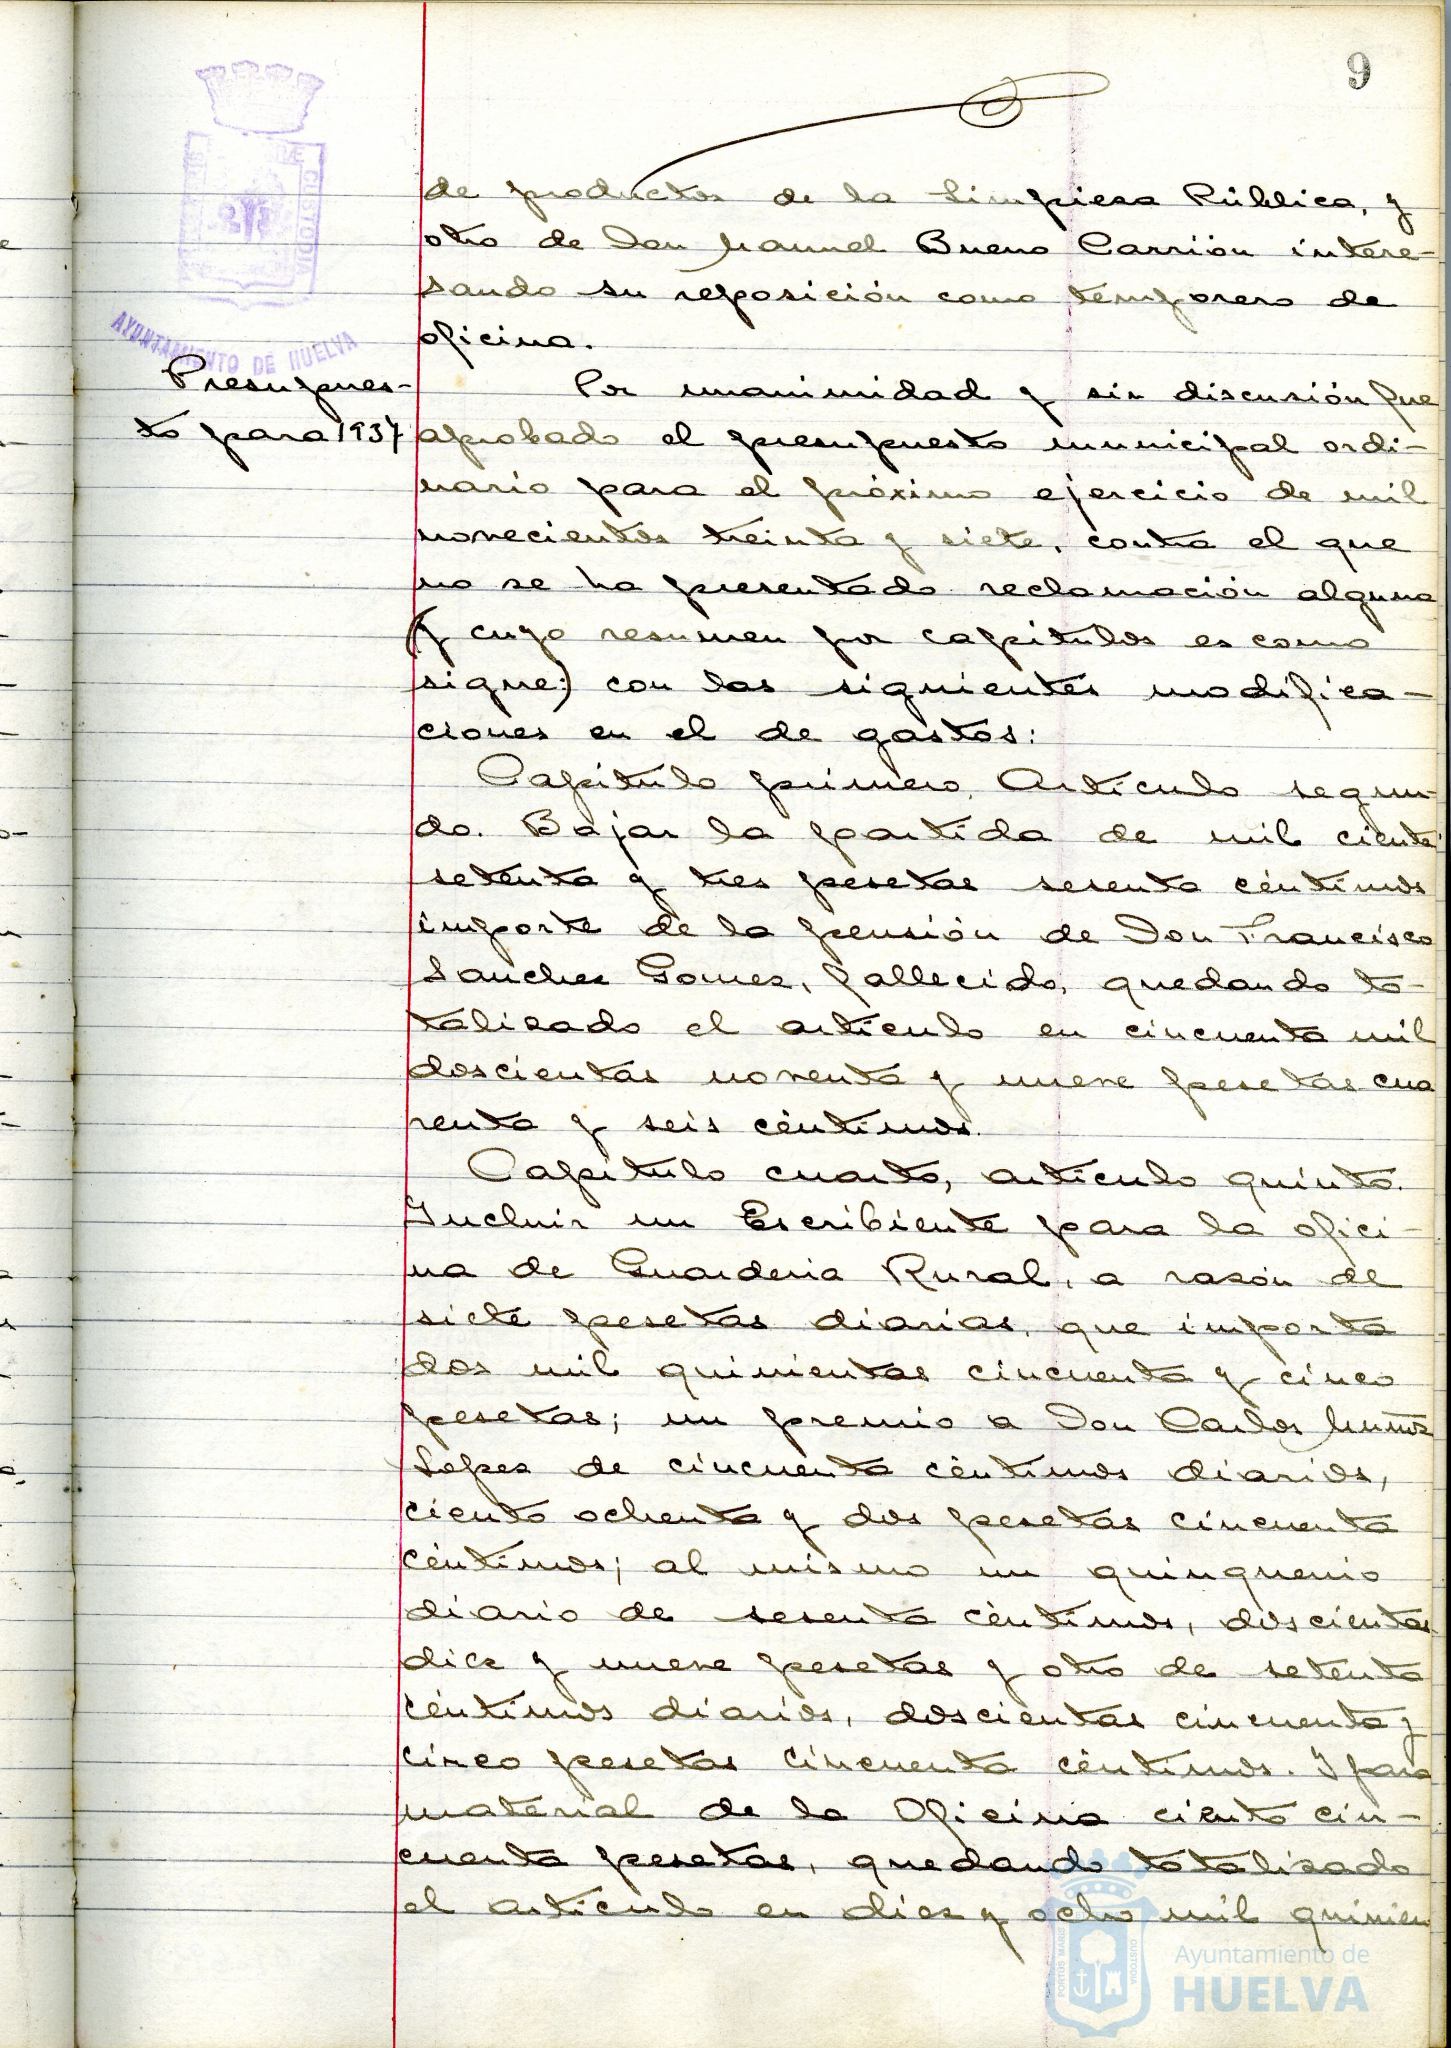 9
de productos de la Limpieza Pública, y
otro de Don Manuel Bueno Carrión intere-
sando su reposición como temporero de
oficina.
AYUNTAMIENTO DE HUELVA
CUSTODIA
Presupues-
to para 1937
Por unanimidad y sin discusión fue
aprobado el presupuesto municipal ordi-
nario para el próximo ejercicio de mil
novecientos treinta y siete, contra el que
no se ha presentado reclamación alguna
(y cuyo resumen por capítulos es como
sigue:) con las siguientes modifica-
ciones en el de gastos:
Capítulo primero, Artículo segun-
do. Bajar la partida de mil ciento
setenta y tres pesetas sesenta céntimos
importe de la pensión de Don Francisco
Sanchez Gomez, fallecido, quedando to-
talizado el artículo en cincuenta mil
doscientas noventa y nueve pesetas cua
renta y seis céntimos.
Capítulo cuarto, artículo quinto.
Incluir un Escribiente para la ofici-
na de Guardería Rural, a razón de
siete pesetas diarias, que importa
dos mil quinientas cincuenta y cinco
pesetas; un premio a Don Carlos Muñoz
Lopez de cincuenta céntimos diarios,
ciento ochenta y dos pesetas cincuenta
céntimos; al mismo un quinquenio
diario de sesenta céntimos, doscientas
diez y nueve pesetas y otro de setenta
céntimos diarios, doscientas cincuenta y
cinco pesetas cincuenta céntimos. Y para
material de la Oficina ciento cin-
cuenta pesetas, quedando totalizado
el artículo en diez y ocho mil quinien
PORTUS MARIS CUSTODIA
Ayuntamiento de
HUELVA